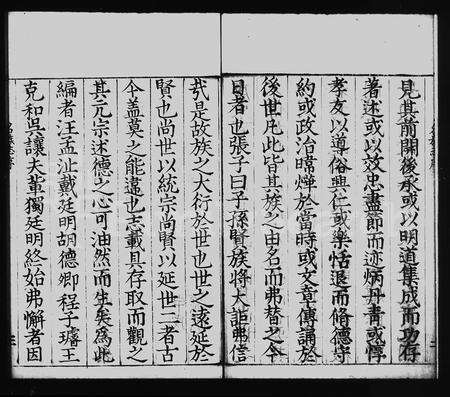 見其前開後承或以明道集成而功存
著述或以效忠盡節而迹炳丹青或惇
孝友以導俗興仁或樂恬退而脩德守
約或政治暐燁於當時或文章傳誦於
後世凡此皆其族之由名而弗替之今
日者也張子曰子孫賢族將大詎弗信
㦲是故族之大衍於世也世之遠延於
賢也尚世以統宗尚賢以延世二者古
今盖莫之能違也志載具存取而觀之
其亢宗述德之心可油然而生矣為此
編者汪孟沚戴廷明胡德卿程子璿王
克和吳讓夫輩獨廷明終始弗懈者因